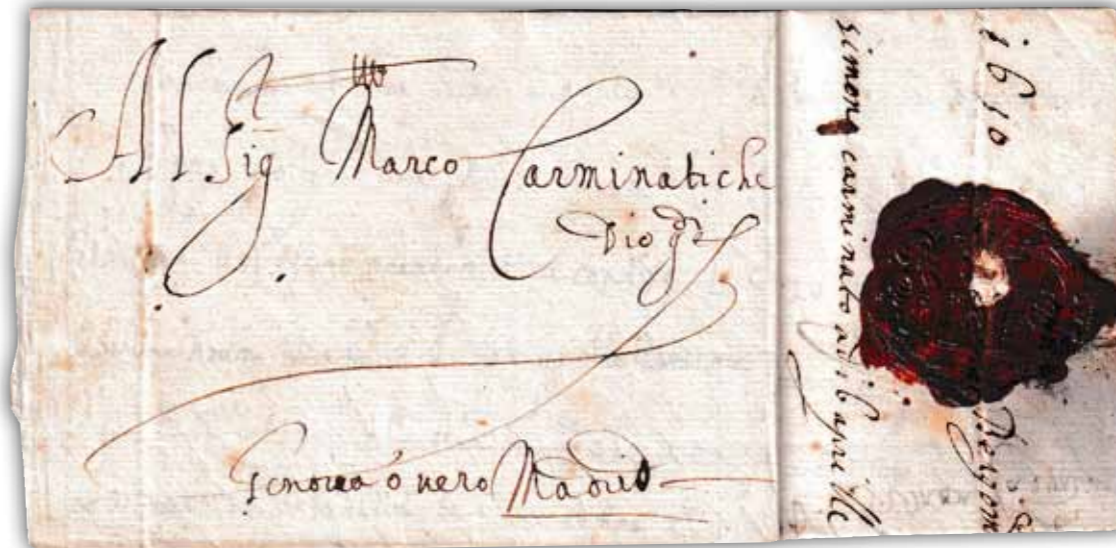 Al Sig Marco Carminatiche
Dio gde
Genova ó vero Madrid
1610 Bergomo
simone carminato adi 16 aprille